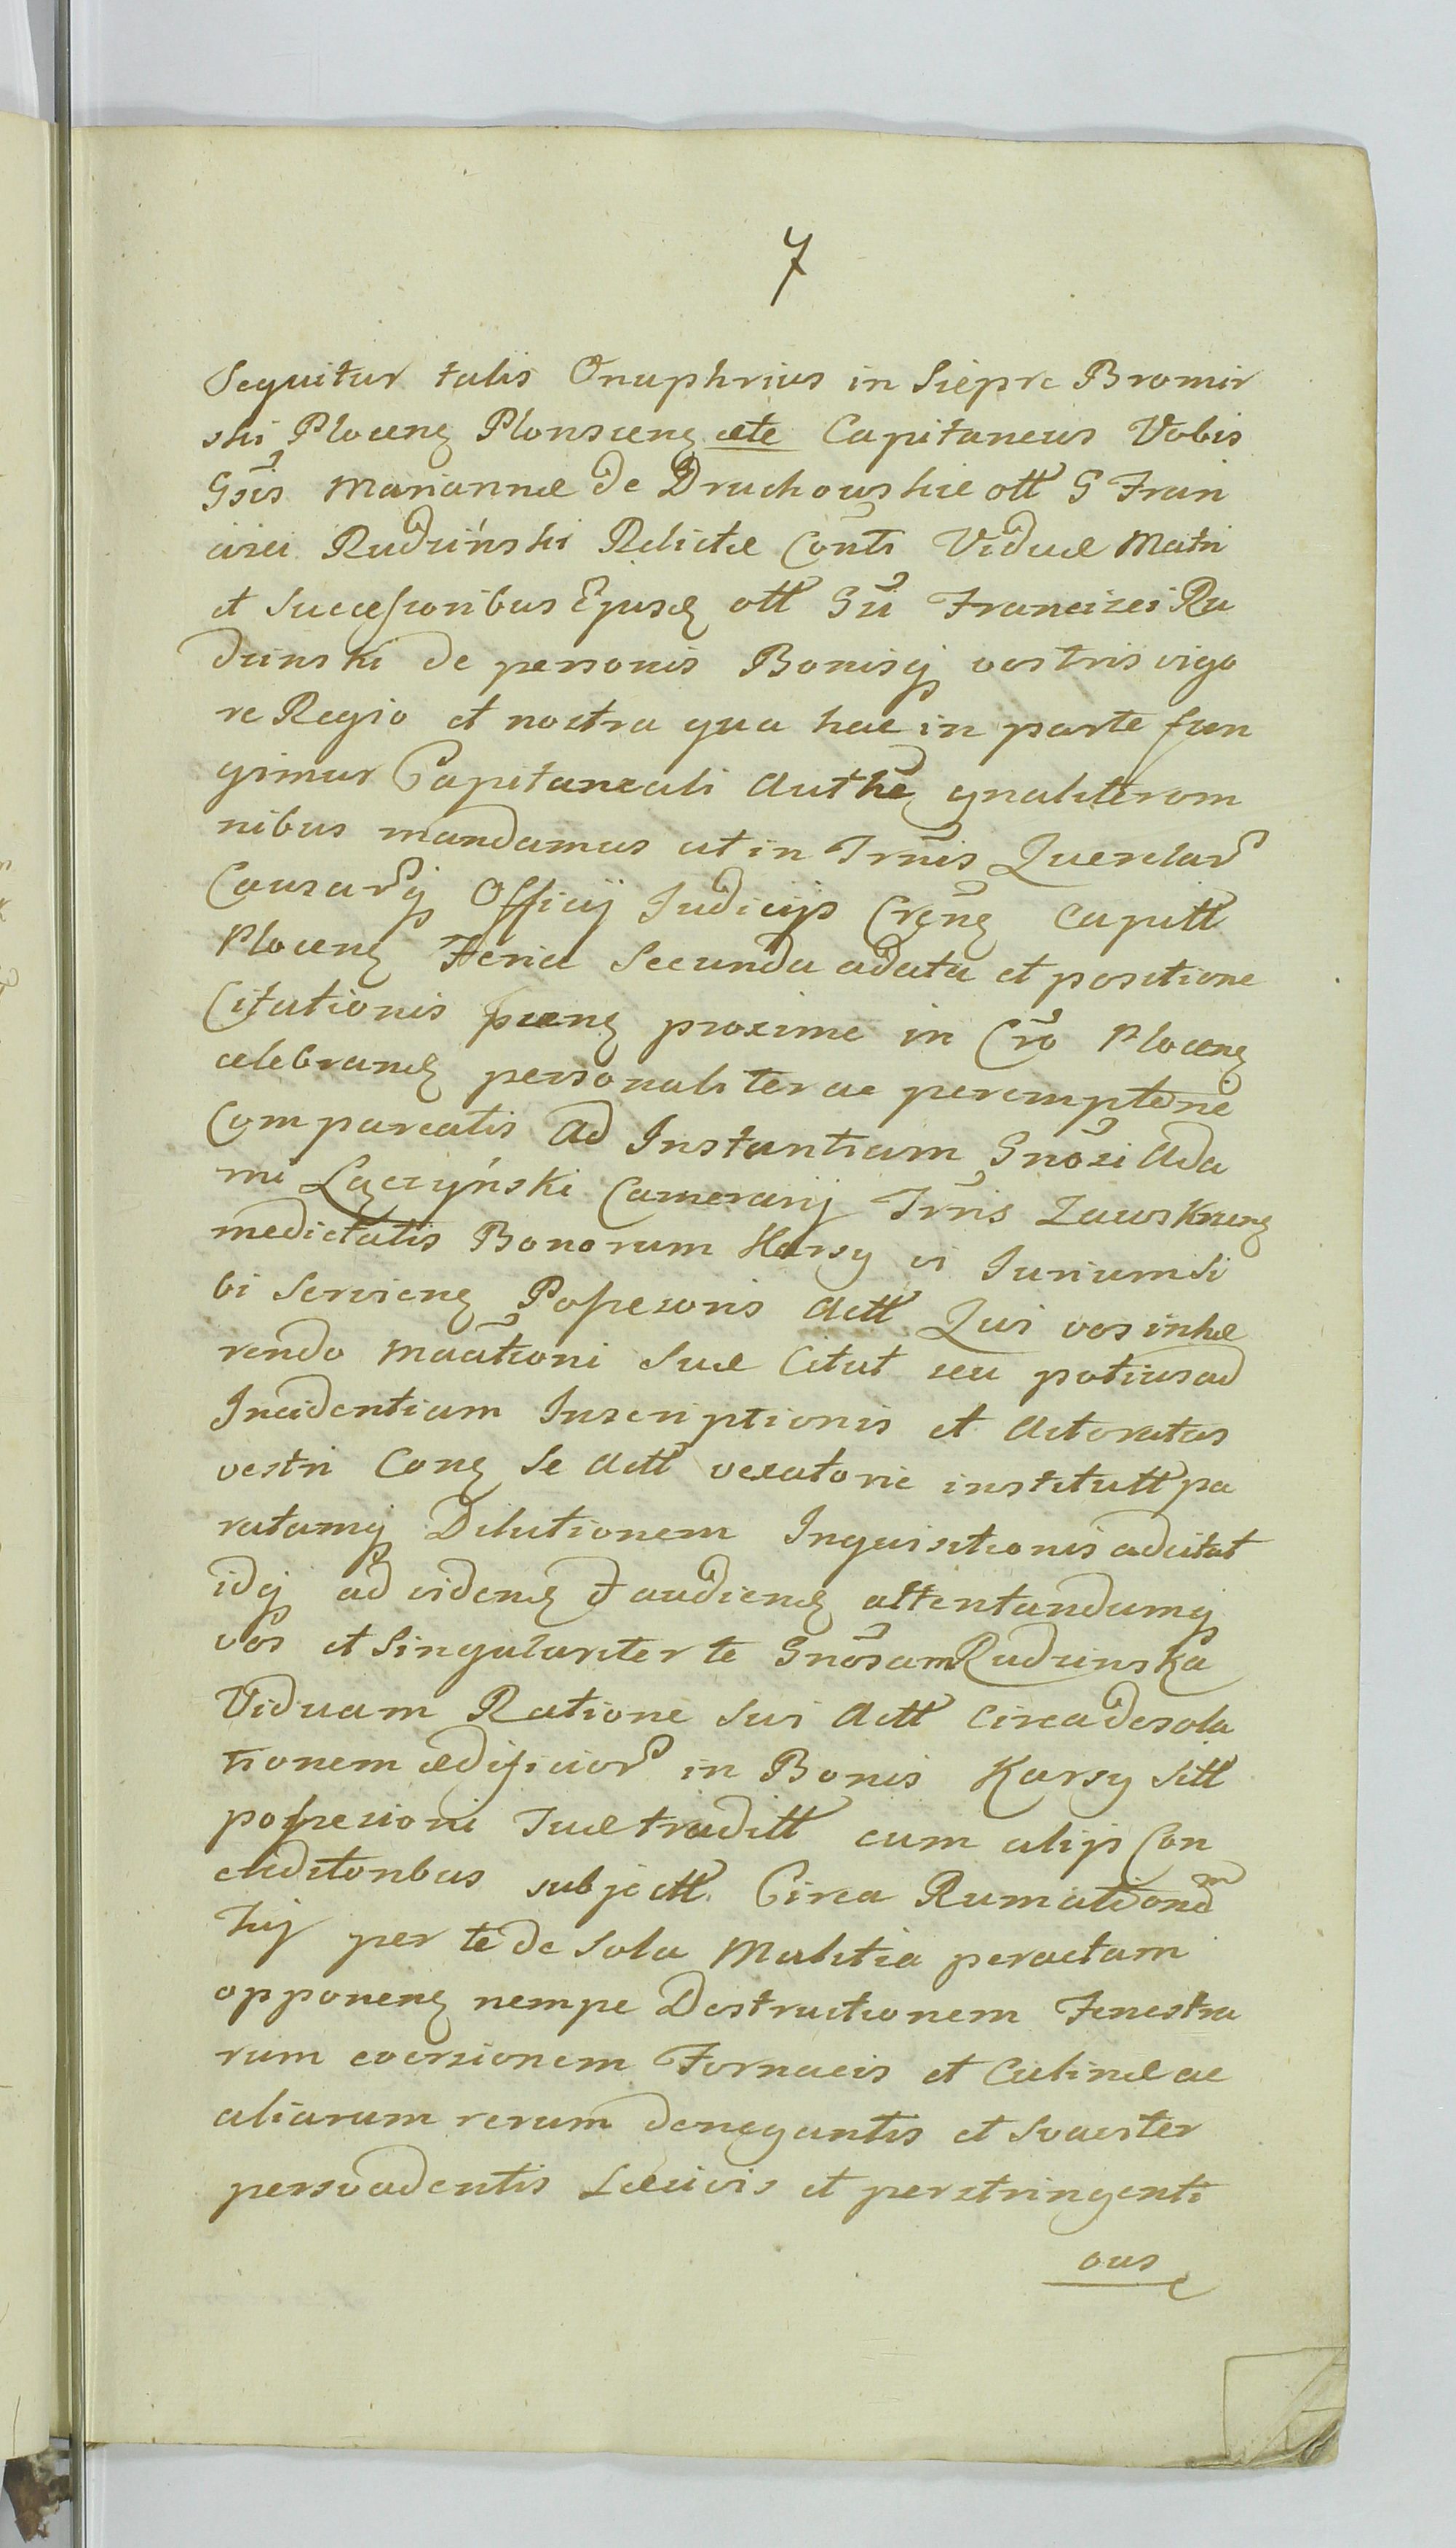 7
Sequitur talis Onuphrius in Siepre Bromir
ski Plocen Plonscen ete Capitaneus Vobis
Gsis Mariannæ de Druchowskie ott G Fran
cisci Rudziński Relictæ Consti Viduæ Matri
et Successoribus Ejusd ott Gsi Francizei Ru
dzinski de personis Bonisq vostris vigo
re Regio et nostra qua hac in parte fun
gimur Capitaneali Authe gnaliter om
nibus mandamus ut in Trnis Querelar
Causarq Officij Judicijs Crens Capitt
Plocen Feria Secunda adata et positione
Citationis præns proxime in Cro Plocen
celebrand personaliter ac peremptorie
Compareatis Ad Instantiam Gnosi Ada
mi Łączyński Camerarij Trnis Zawskrzen
medietatis Bonorum Karsy vi Jurium Si
bi Servien Possesoris Actt Qui vos inhæ
rendo Maationi Suæ Citat seu potius ad
Incidentiam Inscriptionis et Actoratus
vestri Con Se Actt vexatorie institutt pa
ratamq Dilutionem Inquisitionis adcitat
idq ad vidend et audiend attentandumq
vos et Singulariter te Gnosam Rudzinska
Viduam Ratione Sui Actt Circa desola
tionem ædificior in Bonis Karsy Sitt
possesioni Suæ traditt cum alijs Con
creditoribus subjectt. Circa Rumationem
Tuj per te de Sola Malitia peractam
opponen nempe Destructionem Fenestra
rum eversionem Fornacis et Culinæ ac
aliarum rerum denegantis et Svaviter
persvadentis Læsivis et perstringenti
ous